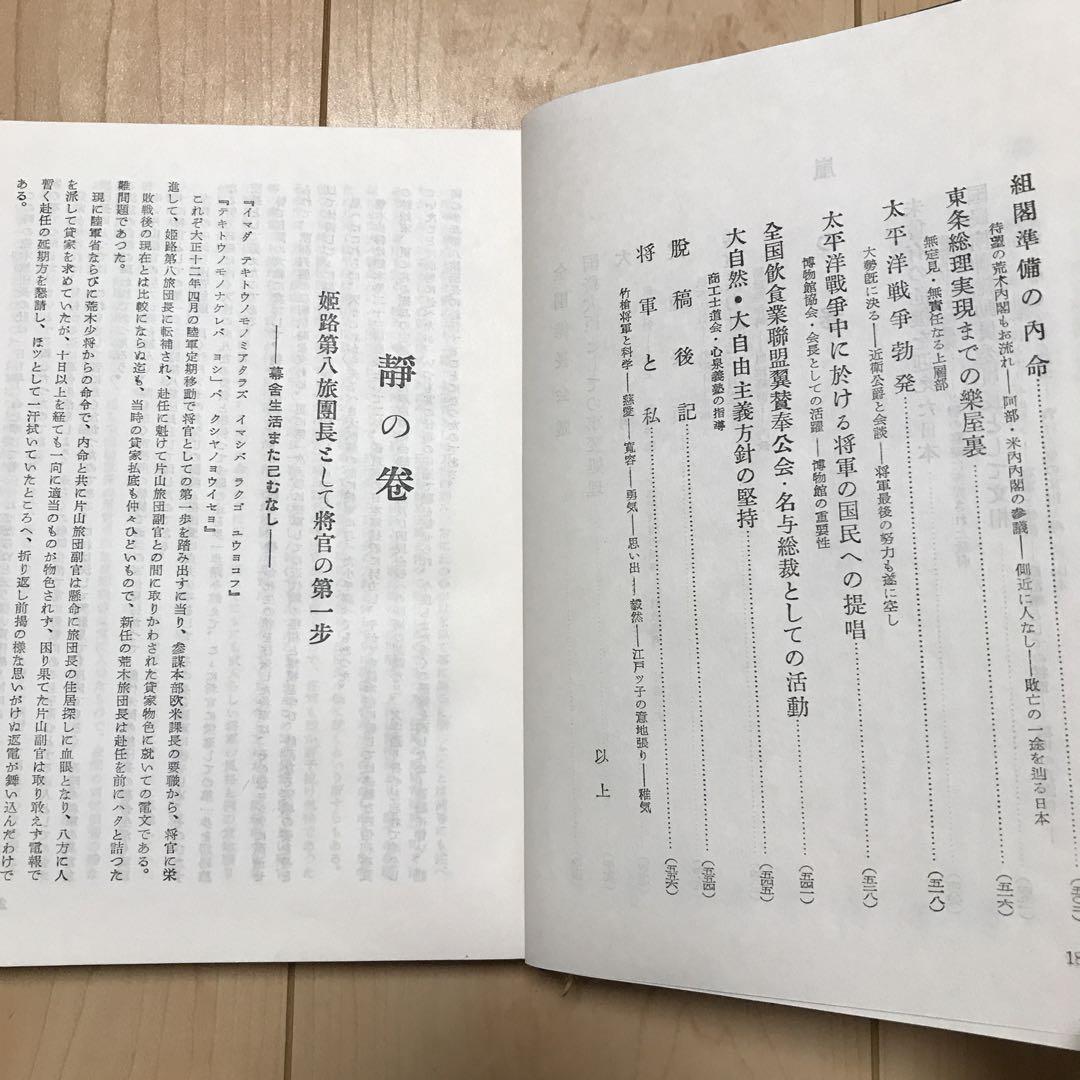 組閣準備の内命
待望の荒木内閣もお流れ――阿部・米内内閣の参議――側近に人なし――敗亡の一途を辿る日本
(五一六)
東条総理実現までの樂屋裏
無定見・無責任なる上層部
(五一八)
太平洋戦争勃発
大勢既に決る――近衛公爵と会談――将軍最後の努力も遂に空し
(五二八)
太平洋戰爭中に於ける将軍の国民への提唱
博物館協会・会長としての活躍――博物館の重要性
(五四一)
全国飲食業聯盟翼賛奉公会・名与総裁としての活動
(五四五)
大自然・大自由主義方針の堅持
商工士道会・心泉義塾の指導
(五五四)
脱稿後記
(五五六)
将軍と私
竹槍将軍と科学――慈愛――寛容――勇気――思い出――毅然――江戸ッ子の意地張り――稚気
以上
18
靜の卷
姫路第八旅團長として將官の第一步
――幕舎生活また已むなし――
『イマダ テキトウノモノミアタラズ イマシバ ラクゴ ユウヨコフ』
『テキトウノモノナケレバ ヨシ」バ クシヤノヨウイセヨ』
これぞ大正十二年四月の陸軍定期移動で将官としての第一歩を踏み出すに当り、参謀本部欧米課長の要職から、将官に栄
進して、姫路第八旅団長に転補され、赴任に魁けて片山旅団副官との間に取りかわされた貸家物色に就いての電文である。
敗戦後の現在とは比較にならぬ迄も、当時の貸家払底も仲々ひどいもので、新任の荒木旅団長は赴任を前にハタと詰つた
難問題であつた。
現に陸軍省ならびに荒木少将からの命令で、内命と共に片山旅団副官は懸命に旅団長の住居探しに血眼となり、八方に人
を派して貸家を求めていたが、十日以上を経ても一向に適当のものが物色されず、困り果てた片山副官は取り敢えず電報で
暫く赴任の延期方を懇請し、ほッとして一汗拭いていたところへ、折り返し前掲の様な思いがけぬ返電が舞い込んだわけで
ある。